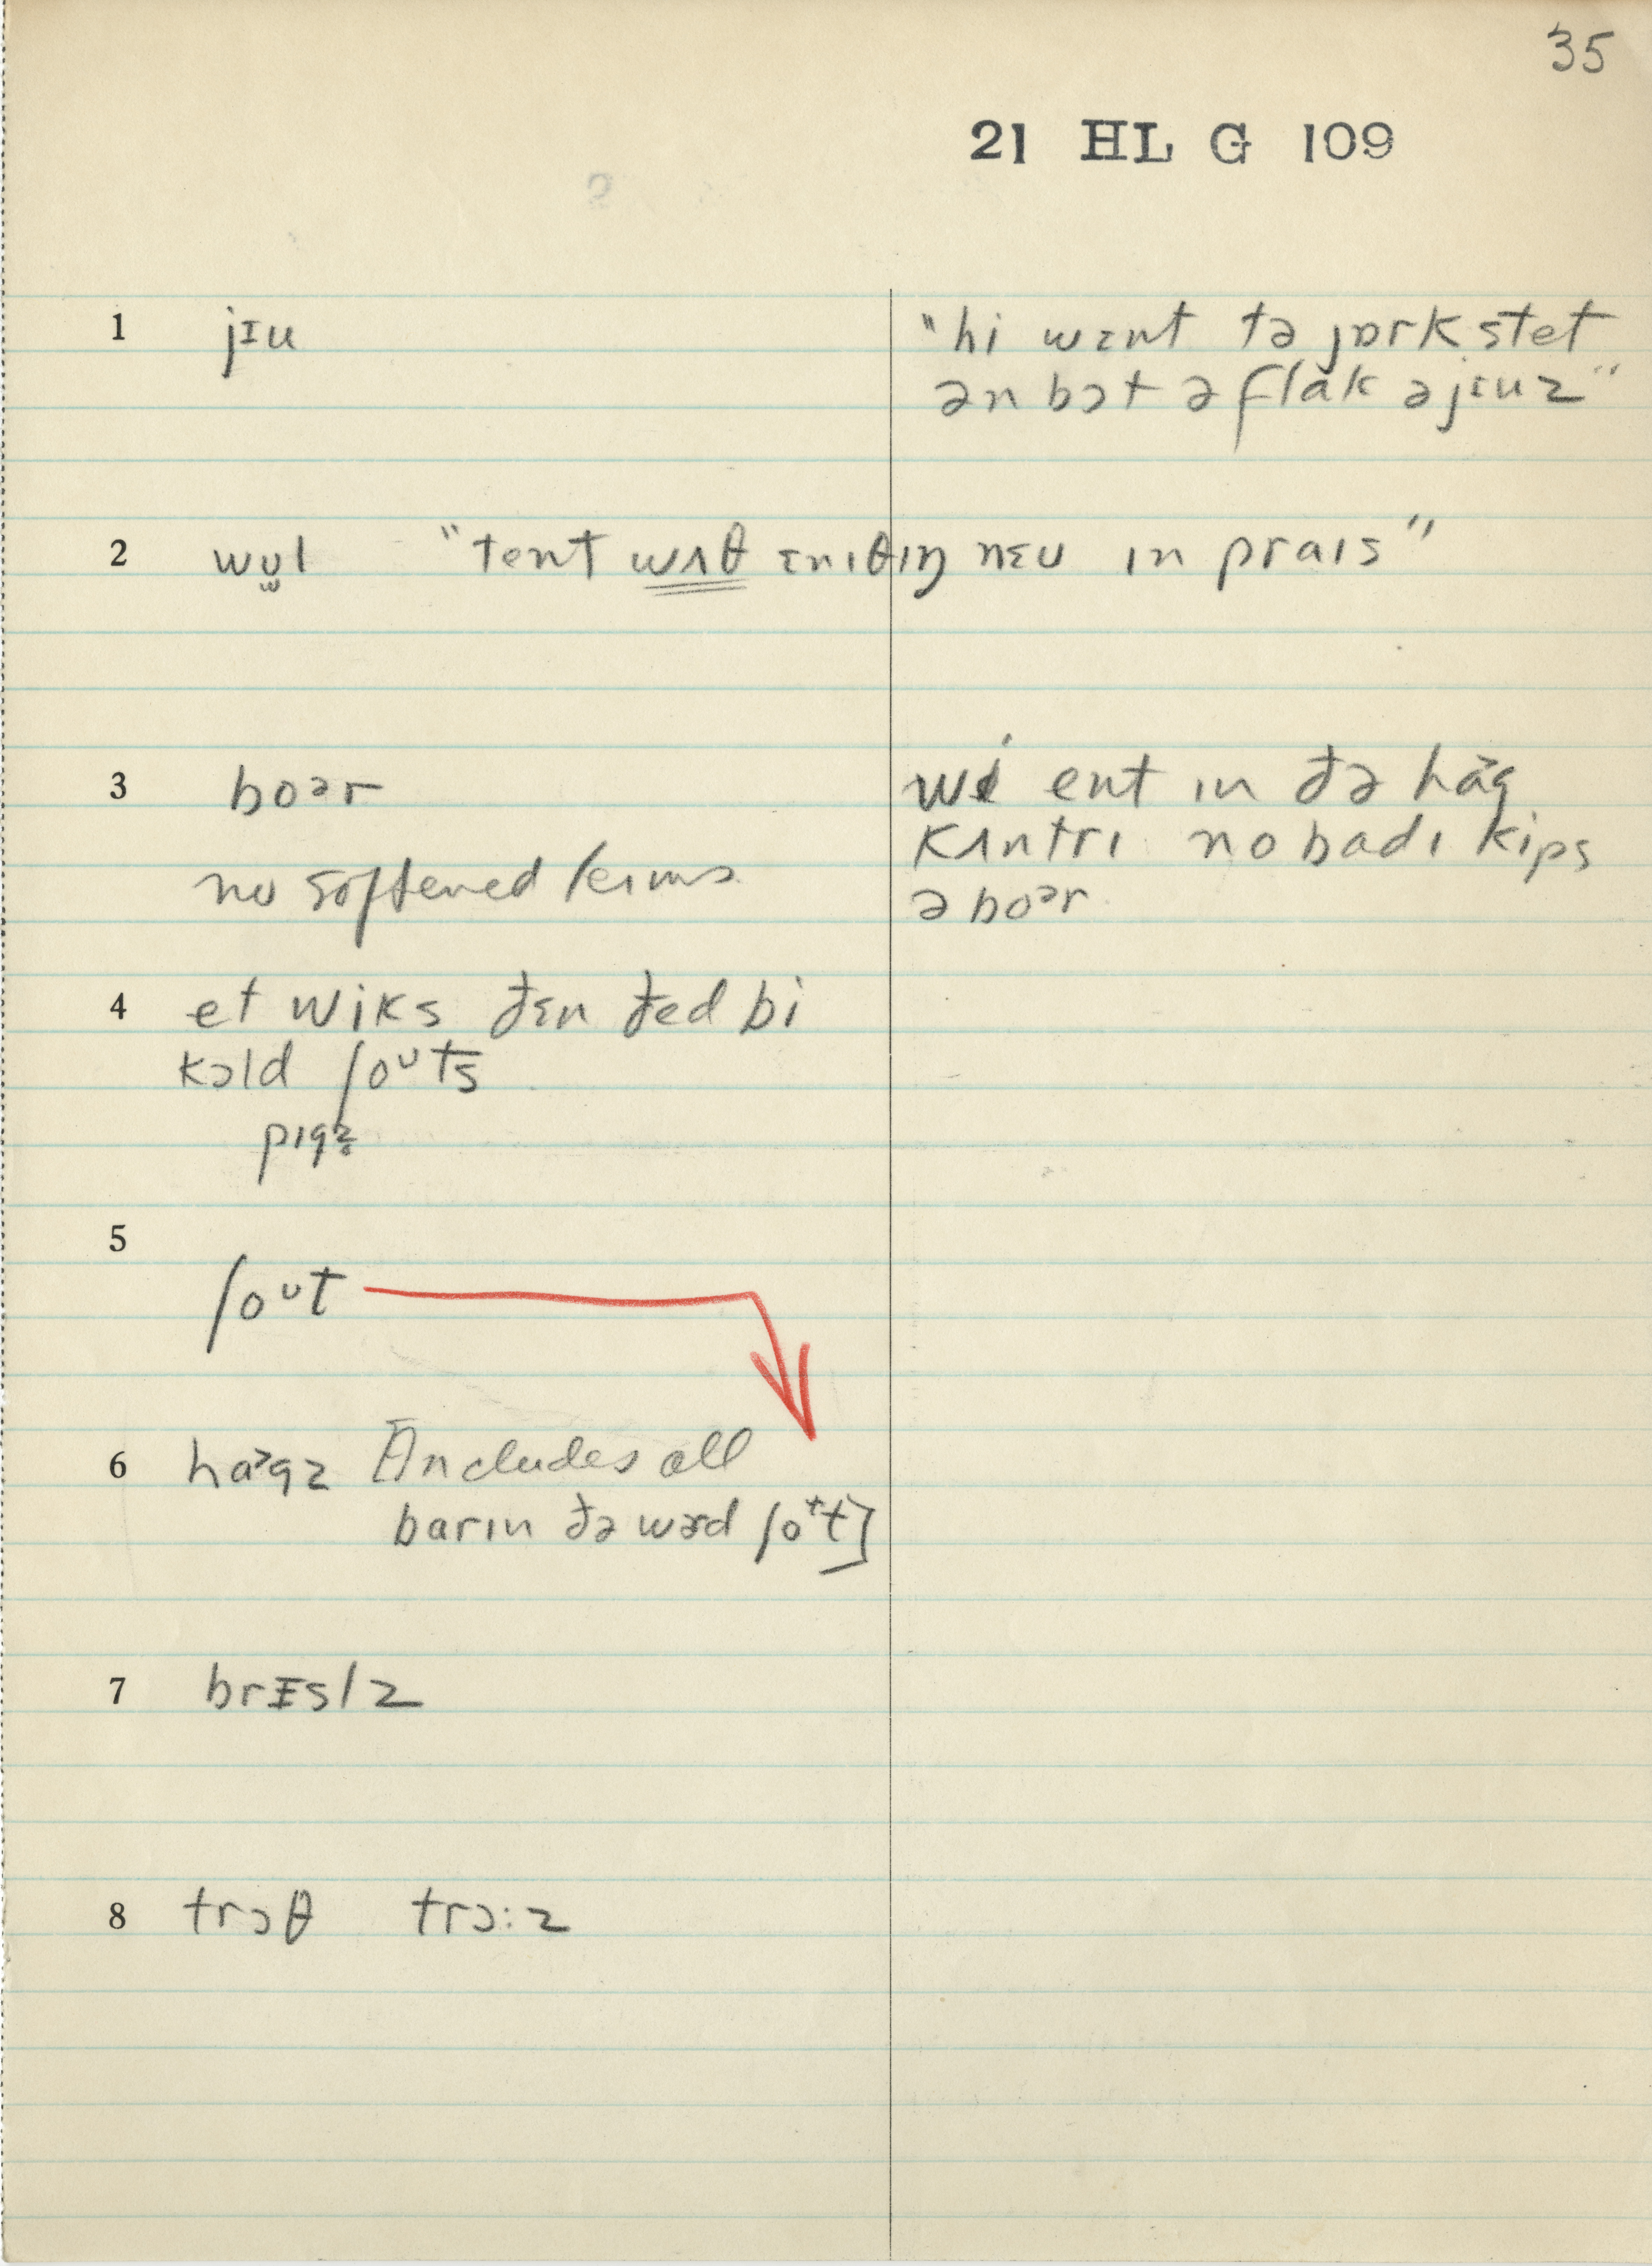 35
21 HL G 109
1 jɪu
"hi wɛnt tə jɒrk stet
ən bɔt ə flak ə jɪuz"
2 wʊ̫l "tent wʌθ ɛnɪθɪŋ nɛu ɪn praɪs"
3 boər
we ent ɪn ðə hag
kʌntrɪ nobadɪ kips
ə boər
no softened terms
4 et wiks ðɛn ðed bi
kɔld ʃoᵘts
pɪgz̥
5
ʃoᵘt
6 ha˃gz [Includes all
barɪn ðə wɚd ʃo⁺t]
7 brɪslz
8 trɔθ trɔ:z